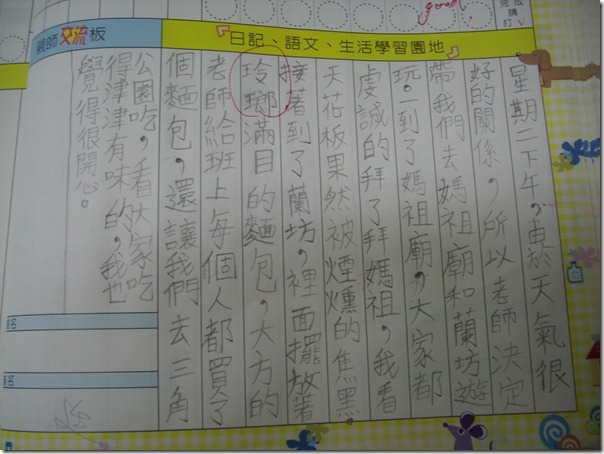 good
完成
請打√
『日記、語文、生活學習園地』
親師交流板
星期二下午，由於天氣很
好的關係，所以老師決定
帶我們去媽祖廟和蘭坊遊
玩。一到了媽祖廟，大家都
虔誠的拜了拜媽祖，我看
天花板果然被煙燻的焦黑。
接著到了蘭坊，裡面擺放著
玲瑯滿目的麵包，大方的
老師給班上每個人都買了
個麵包，還讓我們去三角
公園吃，看大家吃
得津津有味的，我也
覺得很開心。